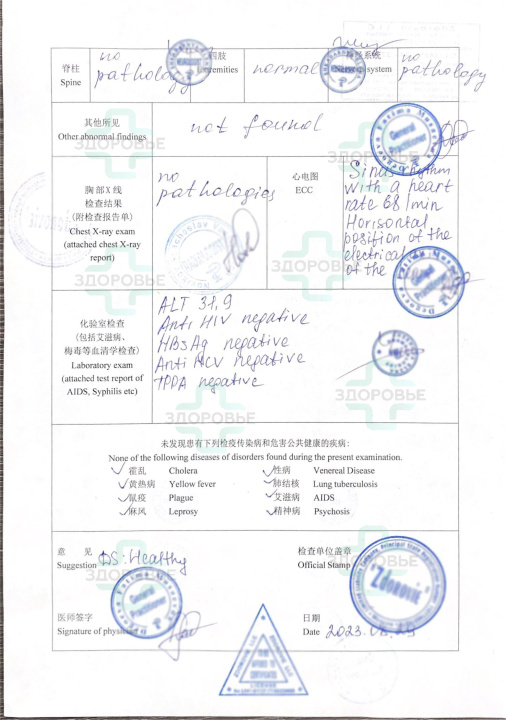 脊柱
Spine
no
pathology
四肢
normal
system
no
pathology
其他所见
Other abnormal findings
not found
胸部 X 线
检查结果
(附检查报告单)
Chest X-ray exam
(attached chest X-ray
report)
no
pathologies
心电图
ECC
Sinus rhythm
with a heart
rate 68/min
Horisontal
position of the
electrical
of the
化验室检查
(包括艾滋病、
梅毒等血清学检查)
Laboratory exam
(attached test report of
AIDS, Syphilis etc)
ALT 31,9
Anti HIV negative
HBsAg negative
Anti HCV negative
TPPA negative
未发现患有下列检疫传染病和危害公共健康的疾病:
None of the following diseases of disorders found during the present examination.
霍乱 Cholera 性病 Venereal Disease
黄热病 Yellow fever 肺结核 Lung tuberculosis
鼠疫 Plague 艾滋病 AIDS
麻风 Leprosy 精神病 Psychosis
意 见
Suggestion DS: Healthy
检查单位盖章
Official Stamp
"Zdorovie"
General
Practitioner
医师签字
Signature of physician
日期
Date 2023.
ЗДОРОВЬЕ
ЗДОРОВЬЕ
ЗДОРОВЬЕ
ЗДОРОВЬЕ
ЗДОРОВЬЕ
ЗДОРОВЬЕ
ЗДОРОВЬЕ